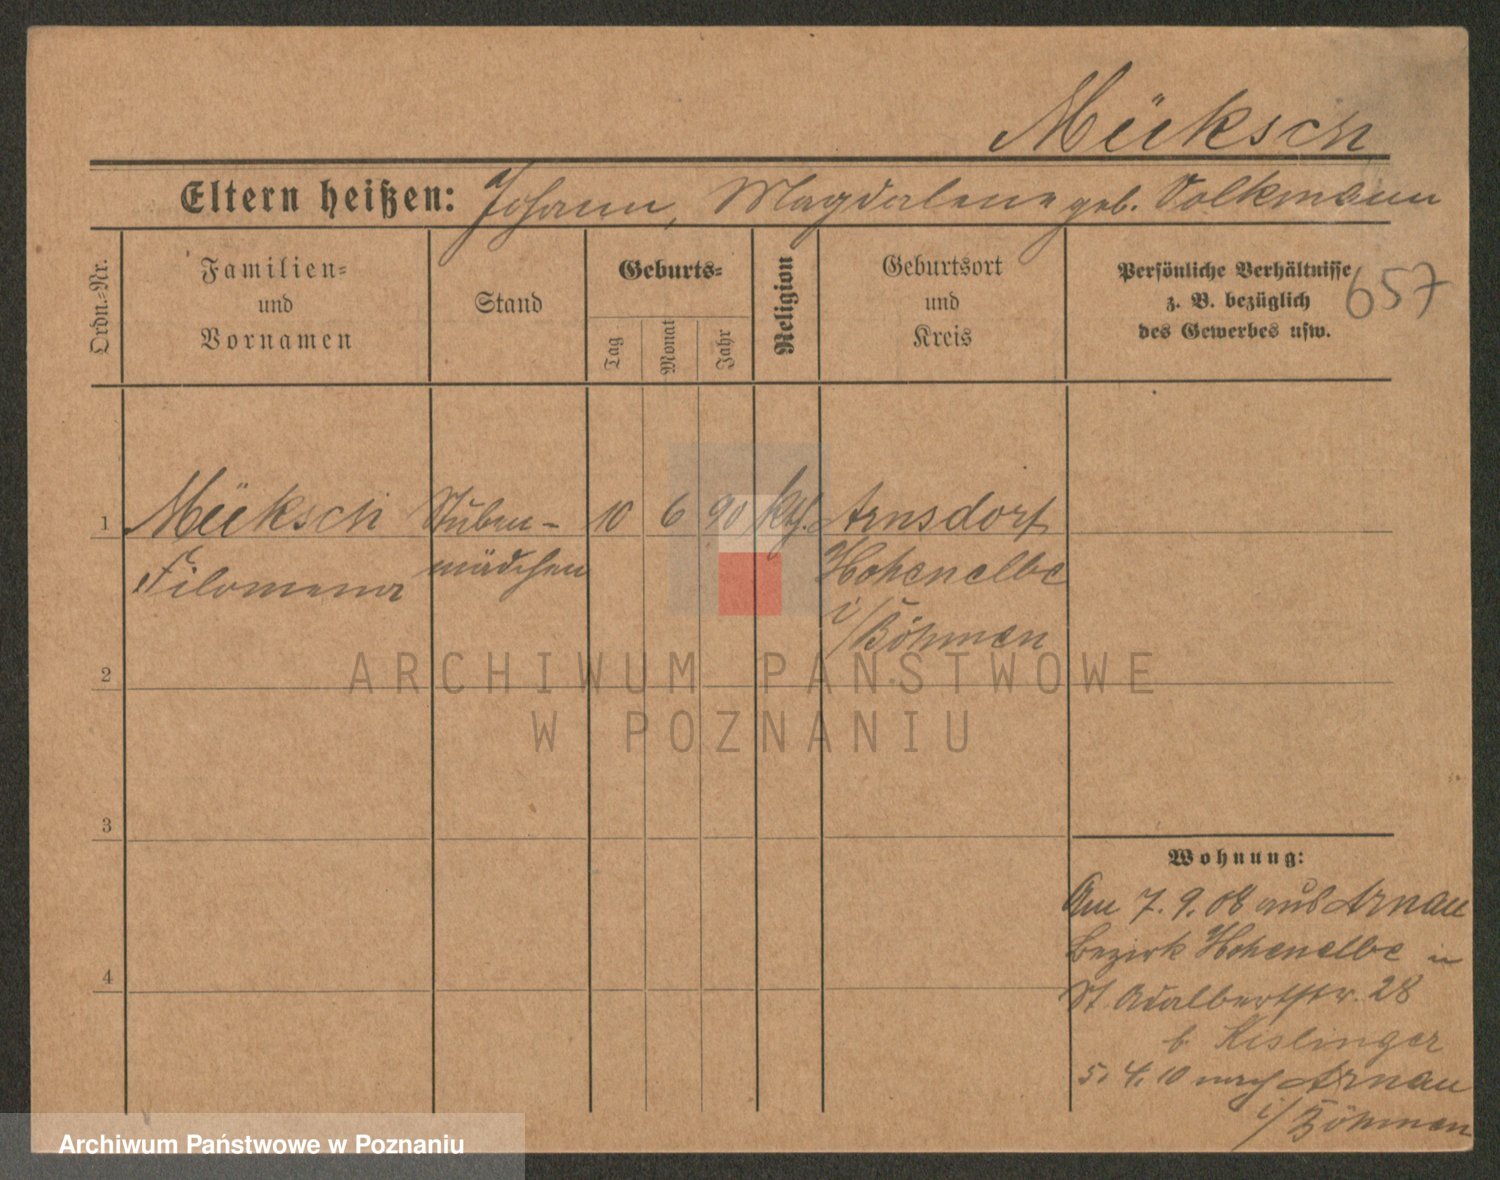 Mücksch
Eltern heißen: Johann, Magdalene geb. Volkmann
Ordn.=Nr.
Familien=
und
Vornamen
Stand
Geburts=
Tag
Monat
Jahr
Religion
Geburtsort
und
Kreis
Persönliche Verhältnisse
z. B. bezüglich
des Gewerbes usw.
657
1 Mücksch Stuben- 10 6 90 kth. Arnsdorf
Filomena mädchen Hohenelbe
i/Böhmen
2
3
4
Wohnung:
Am 7. 9. 08 aus Arnau
Bezirk Hohenelbe in
St. Adalbertstr. 28
b. Kislinger
5. 4. 10 nach Arnau
i/Böhmen
ARCHIWUM PAŃSTWOWE
W POZNANIU
Archiwum Państwowe w Poznaniu